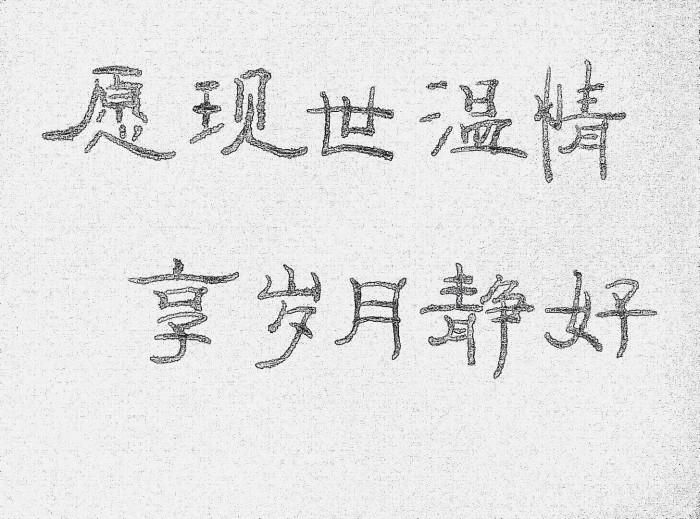 愿现世温情
享岁月静好